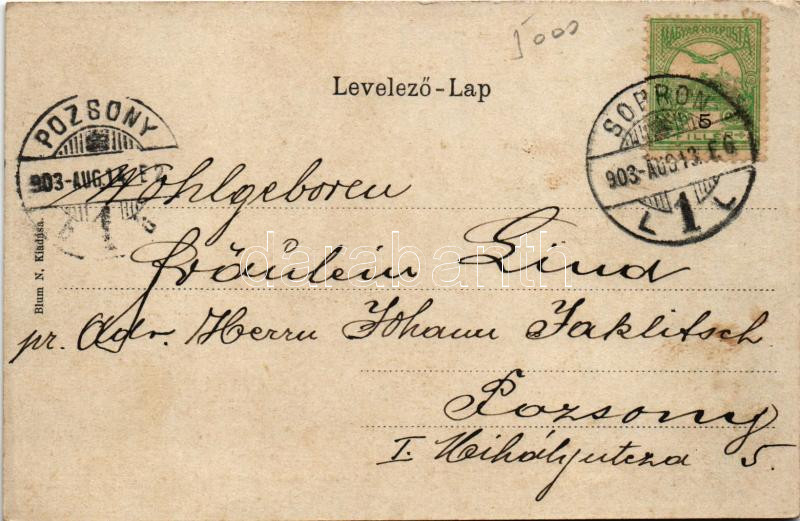 5000
Levelező-Lap
MAGYAR KIR. POSTA
5
SOPRON
903-AUG.13. E6
L 1 L
POZSONY
903-AUG.13. E
1
Wohlgeboren
Fräulein Lind
pr. Adr. Herrn Johann Jaklitsch
Pozsony
I. Mihályutcza 5.
Blum N. Kiadása.
darabanth